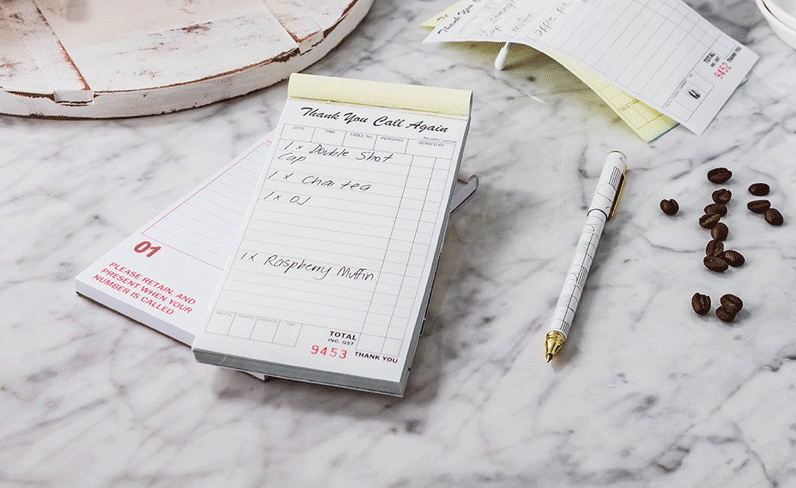 Thank You Call Again
DATE TIME TABLE No. PERSONS SERVED BY
1 x Double Shot
Cap
1 x Chai tea
1 x OJ
1 x Raspberry Muffin
TOTAL
INC. GST
9453 THANK YOU
01
PLEASE RETAIN, AND
PRESENT WHEN YOUR
NUMBER IS CALLED
Thank You
Cap strong
apple
TOTAL
INC. GST
9452
THANK YOU